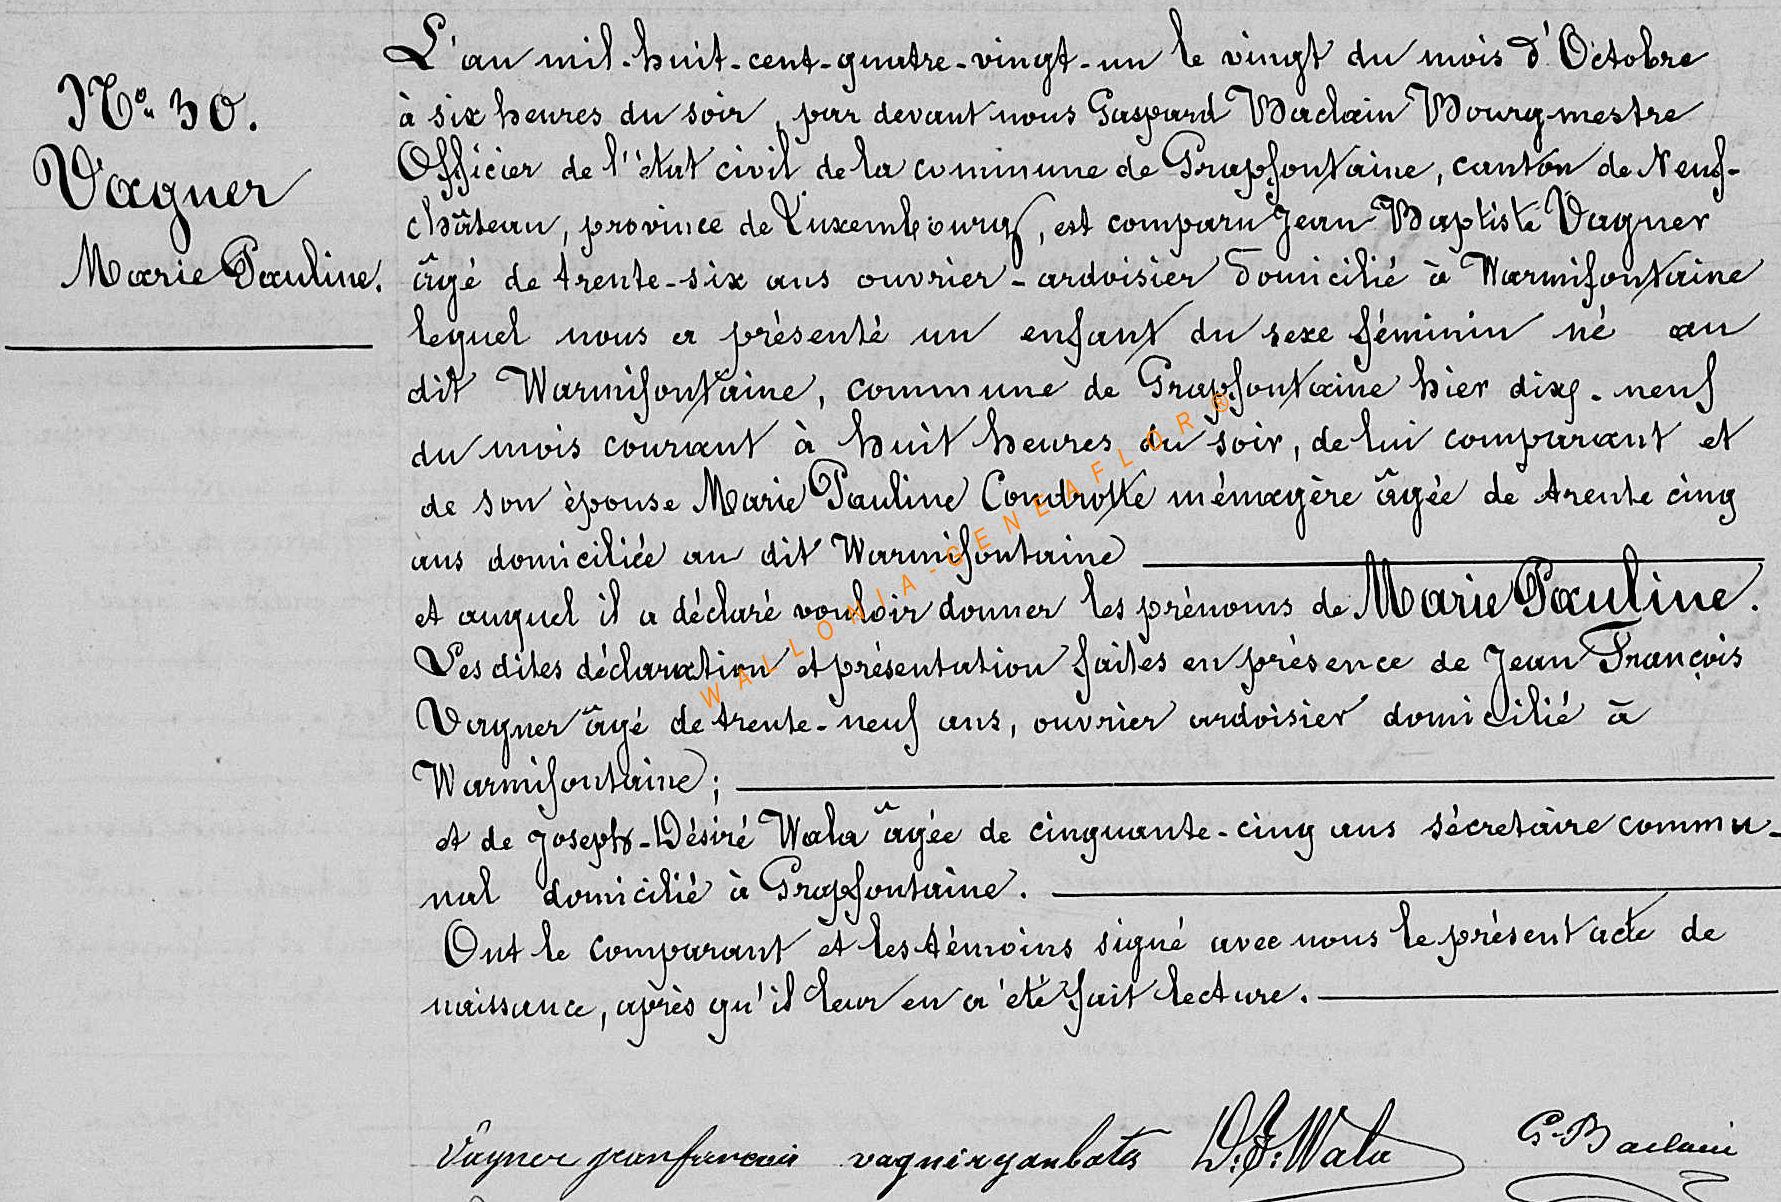 No 30.
Vagner
Marie Pauline.
L'an mil-huit-cent-quatre-vingt-un le vingt du mois d'Octobre
à six heures du soir, par devant nous Gaspard Baclain Bourgmestre
Officier de l'état civil de la commune de Grapfontaine, canton de Neuf-
château, province de Luxembourg, est comparu Jean Baptiste Vagner
âgé de trente-six ans ouvrier-ardoisier domicilié à Warmifontaine
lequel nous a présenté un enfant du sexe féminin né au
dit Warmifontaine, commune de Grapfontaine hier dix-neuf
du mois courant à huit heures du soir, de lui comparant et
de son épouse Marie Pauline Condrotte ménagère âgée de trente cinq
ans domiciliée au dit Warmifontaine
et auquel il a déclaré vouloir donner les prénoms de Marie Pauline.
Les dites déclaration et présentation faites en présence de Jean François
Vagner âgé de trente-neuf ans, ouvrier ardoisier domicilié à
Warmifontaine;
et de Joseph-Désiré Wala âgée de cinquante-cinq ans sécretaire commu-
nal domicilié à Grapfontaine.
Ont le comparant et les témoins signé avec nous le présent acte de
naissance, après qu'il leur en a été fait lecture.
Vagner jeanfrancois vagnier yanbatis D.J. Wala G. Baclain
WALLONIA-GENEAFLOR®